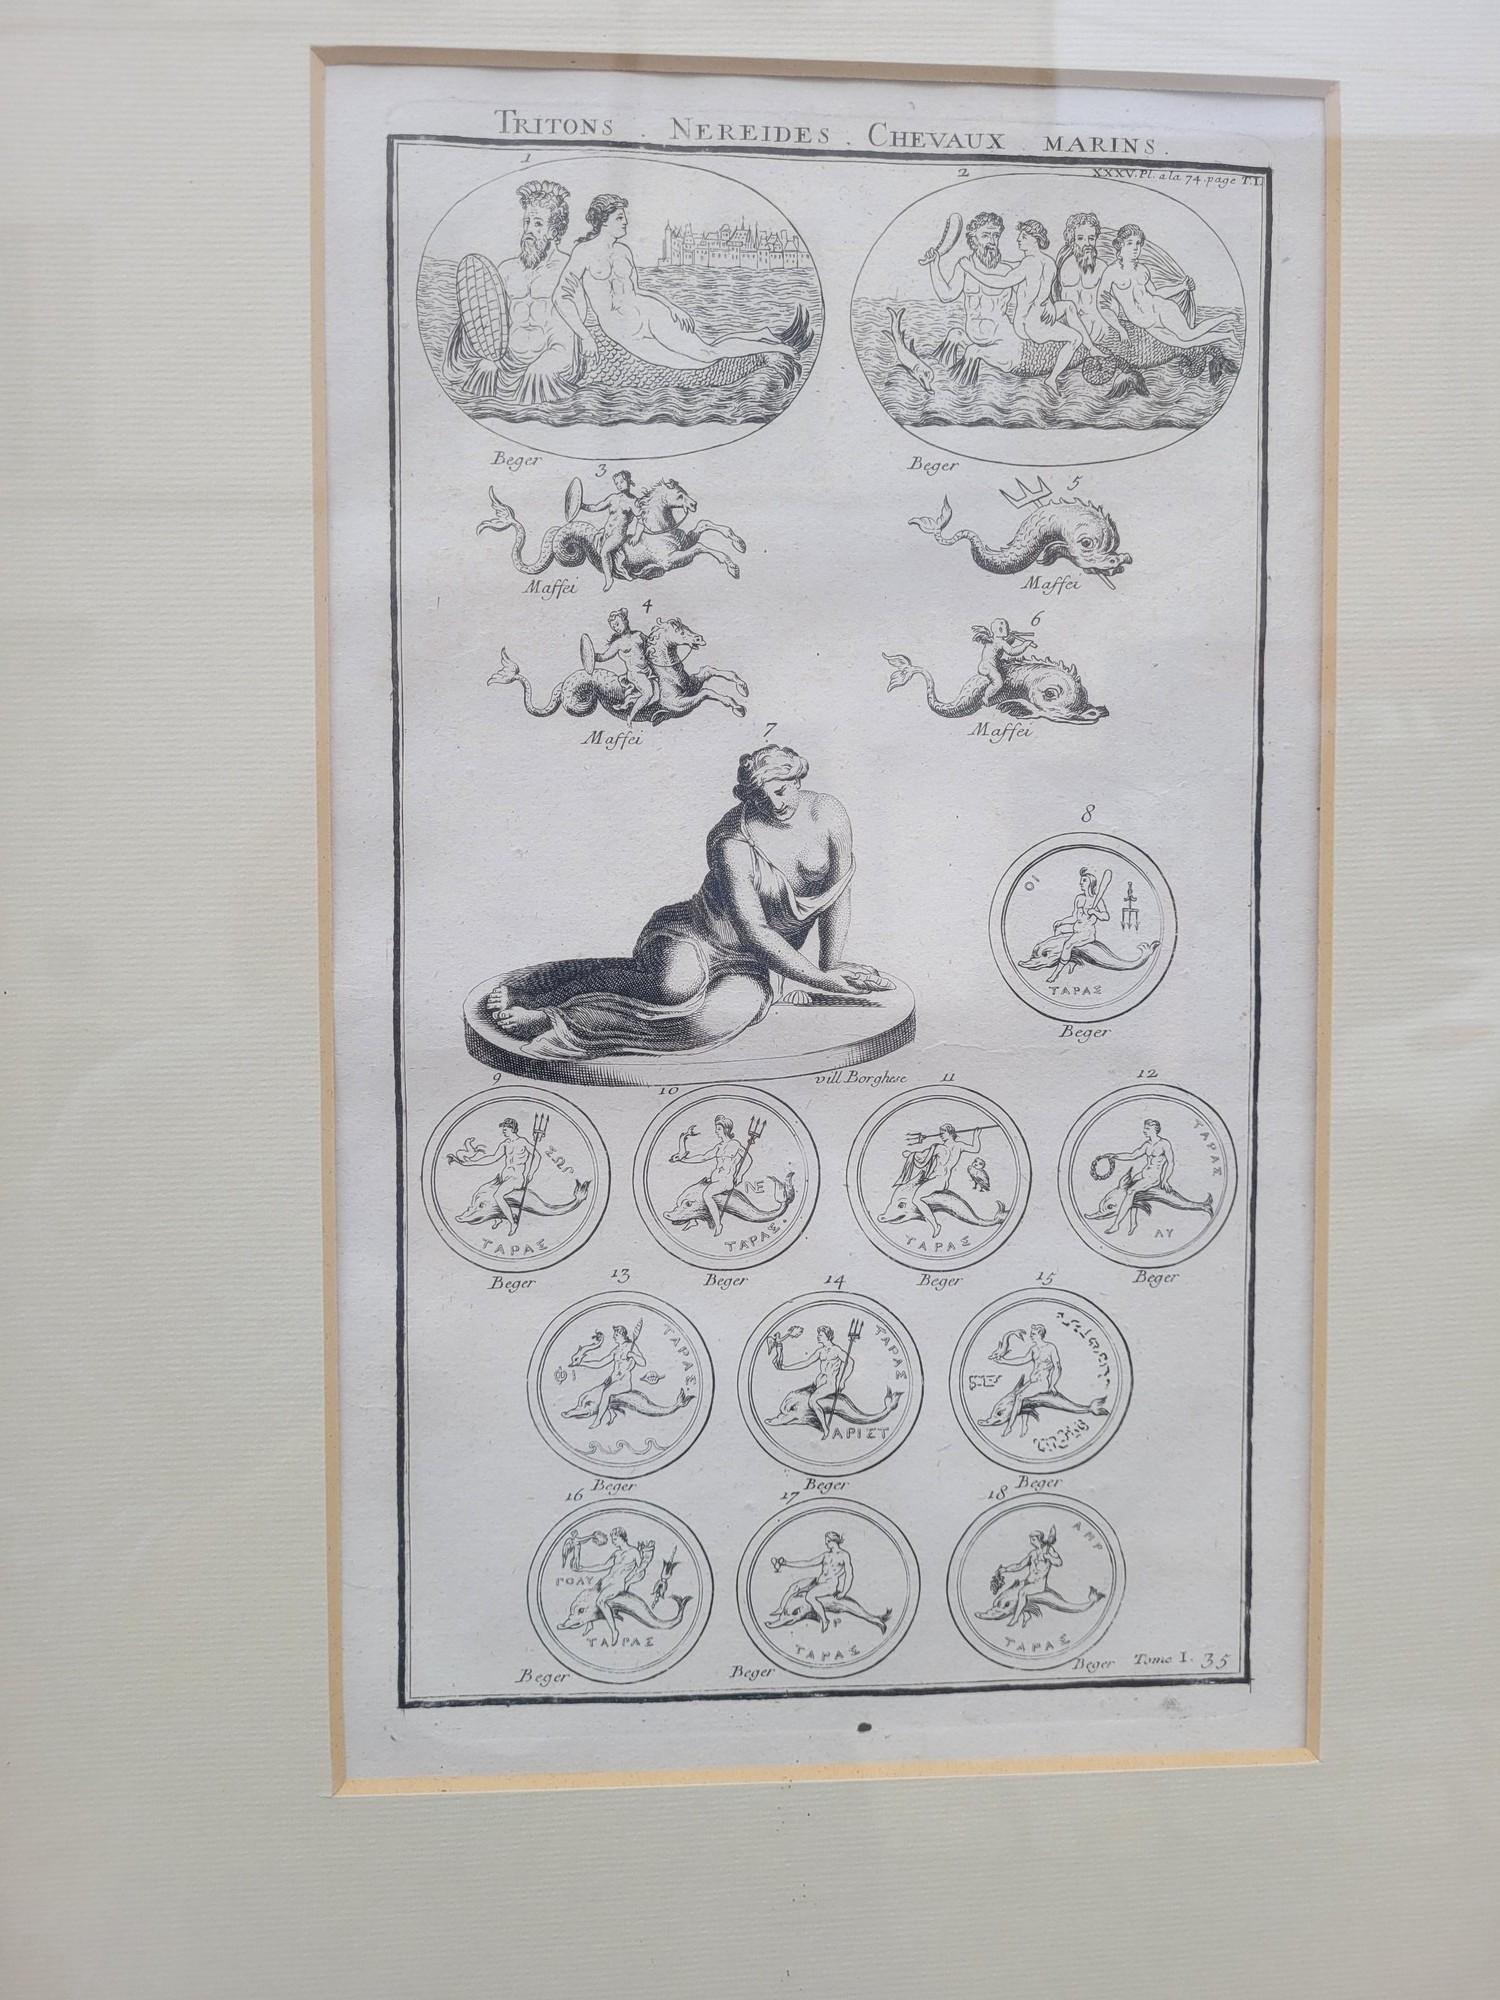 TRITONS . NEREIDES . CHEVAUX . MARINS .
XXXV. Pl. a la 74. page T. I.
1
2
Beger
Beger
3
5
Maffei
Maffei
4
6
Maffei
Maffei
7
8
ΟΙ
ΤΑΡΑΣ
Beger
vill. Borghese
9
10
11
12
ΣΩΡ
ΤΑΡΑΣ
ΝΕ
ΤΑΡΑΣ.
ΤΑΡΑΣ
ΤΑΡΑΣ
ΛΥ
Beger
Beger
Beger
Beger
13
14
15
ΤΑΡΑΣ.
ΦΙ
Φ
ΤΑΡΑΣ
ΑΡΙΣΤ
Beger
Beger
Beger
16
17
18
ΓΟΛΥ
ΤΑΡΑΣ
Ρ
ΤΑΡΑΣ
ΤΑΡΑΣ
Beger
Beger
Beger
Tome I. 35